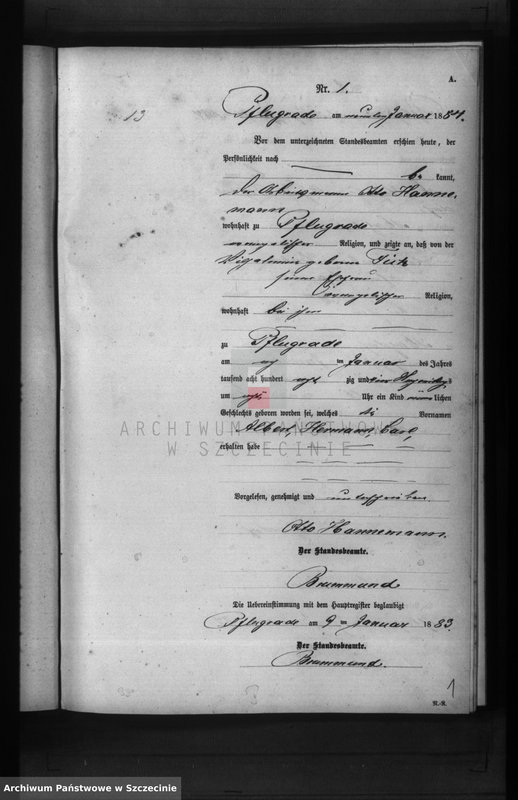 A.
Nr. 1.
13
Pflugrade am neunten Januar 1884.
Vor dem unterzeichneten Standesbeamten erschien heute, der
Persönlichkeit nach
be kannt,
der Arbeitsmann Otto Hanne-
mann
wohnhaft zu Pflugrade
evangelischer Religion, und zeigte an, daß von der
geborene
seiner Ehefrau
evangelischer Religion,
wohnhaft bei ihm
zu Pflugrade
am Januar des Jahres
tausend acht hundert acht zig und
um Uhr ein Kind männlichen
Geschlechts geboren worden sei, welches die Vornamen
Albert, Hermann, Carl,
erhalten habe
Vorgelesen, genehmigt und unterschrieben
Otto Hannemann.
Der Standesbeamte.
Brummund
Die Uebereinstimmung mit dem Hauptregister beglaubigt
Pflugrade am 9 ten Januar 1883.
Der Standesbeamte.
Brummund.
1
ARCHIWUM PAŃSTWOWE
W SZCZECINIE
Archiwum Państwowe w Szczecinie